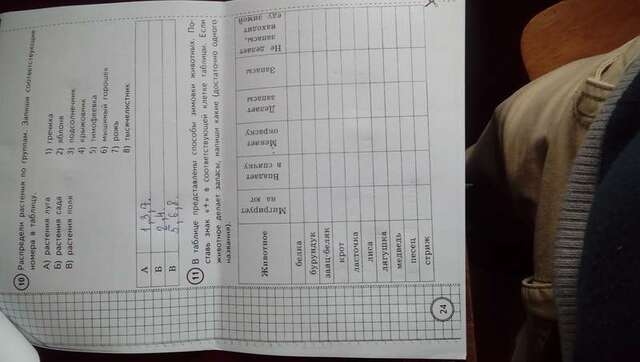 10 Распредели растения по группам. Запиши соответствующие
номера в таблицу.
А) растения луга
Б) растения сада
В) растения поля
1) гречиха
2) яблоня
3) подсолнечник
4) крыжовник
5) тимофеевка
6) мышиный горошек
7) рожь
8) тысячелистник
А 1,3,7.
Б 2,4.
В 5,6,8.
11 В таблице представлены способы зимовки животных. По-
ставь знак «+» в соответствующей клетке таблицы. Если
животное делает запасы, напиши какие (достаточно одного
названия).
Животное
Мигрирует
на юг
Впадает
в спячку
Меняет
окраску
Делает
запасы
Запасы
Не делает
запасы,
находит
еду зимой
белка
бурундук
заяц-беляк
крот
ласточка
лиса
лягушка
медведь
песец
стриж
24